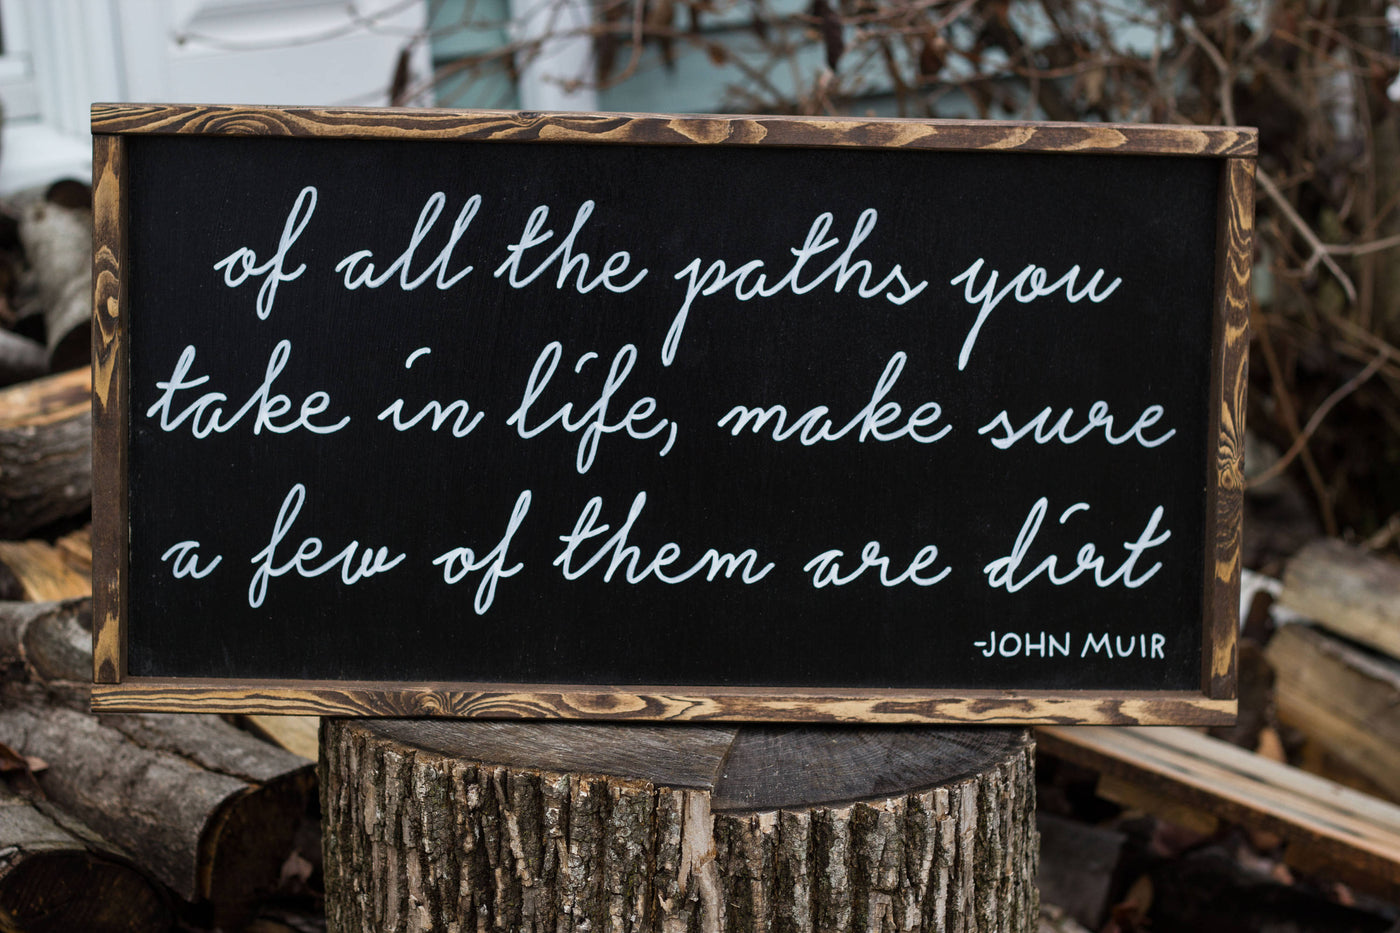 of all the paths you
take in life, make sure
a few of them are dirt
-JOHN MUIR